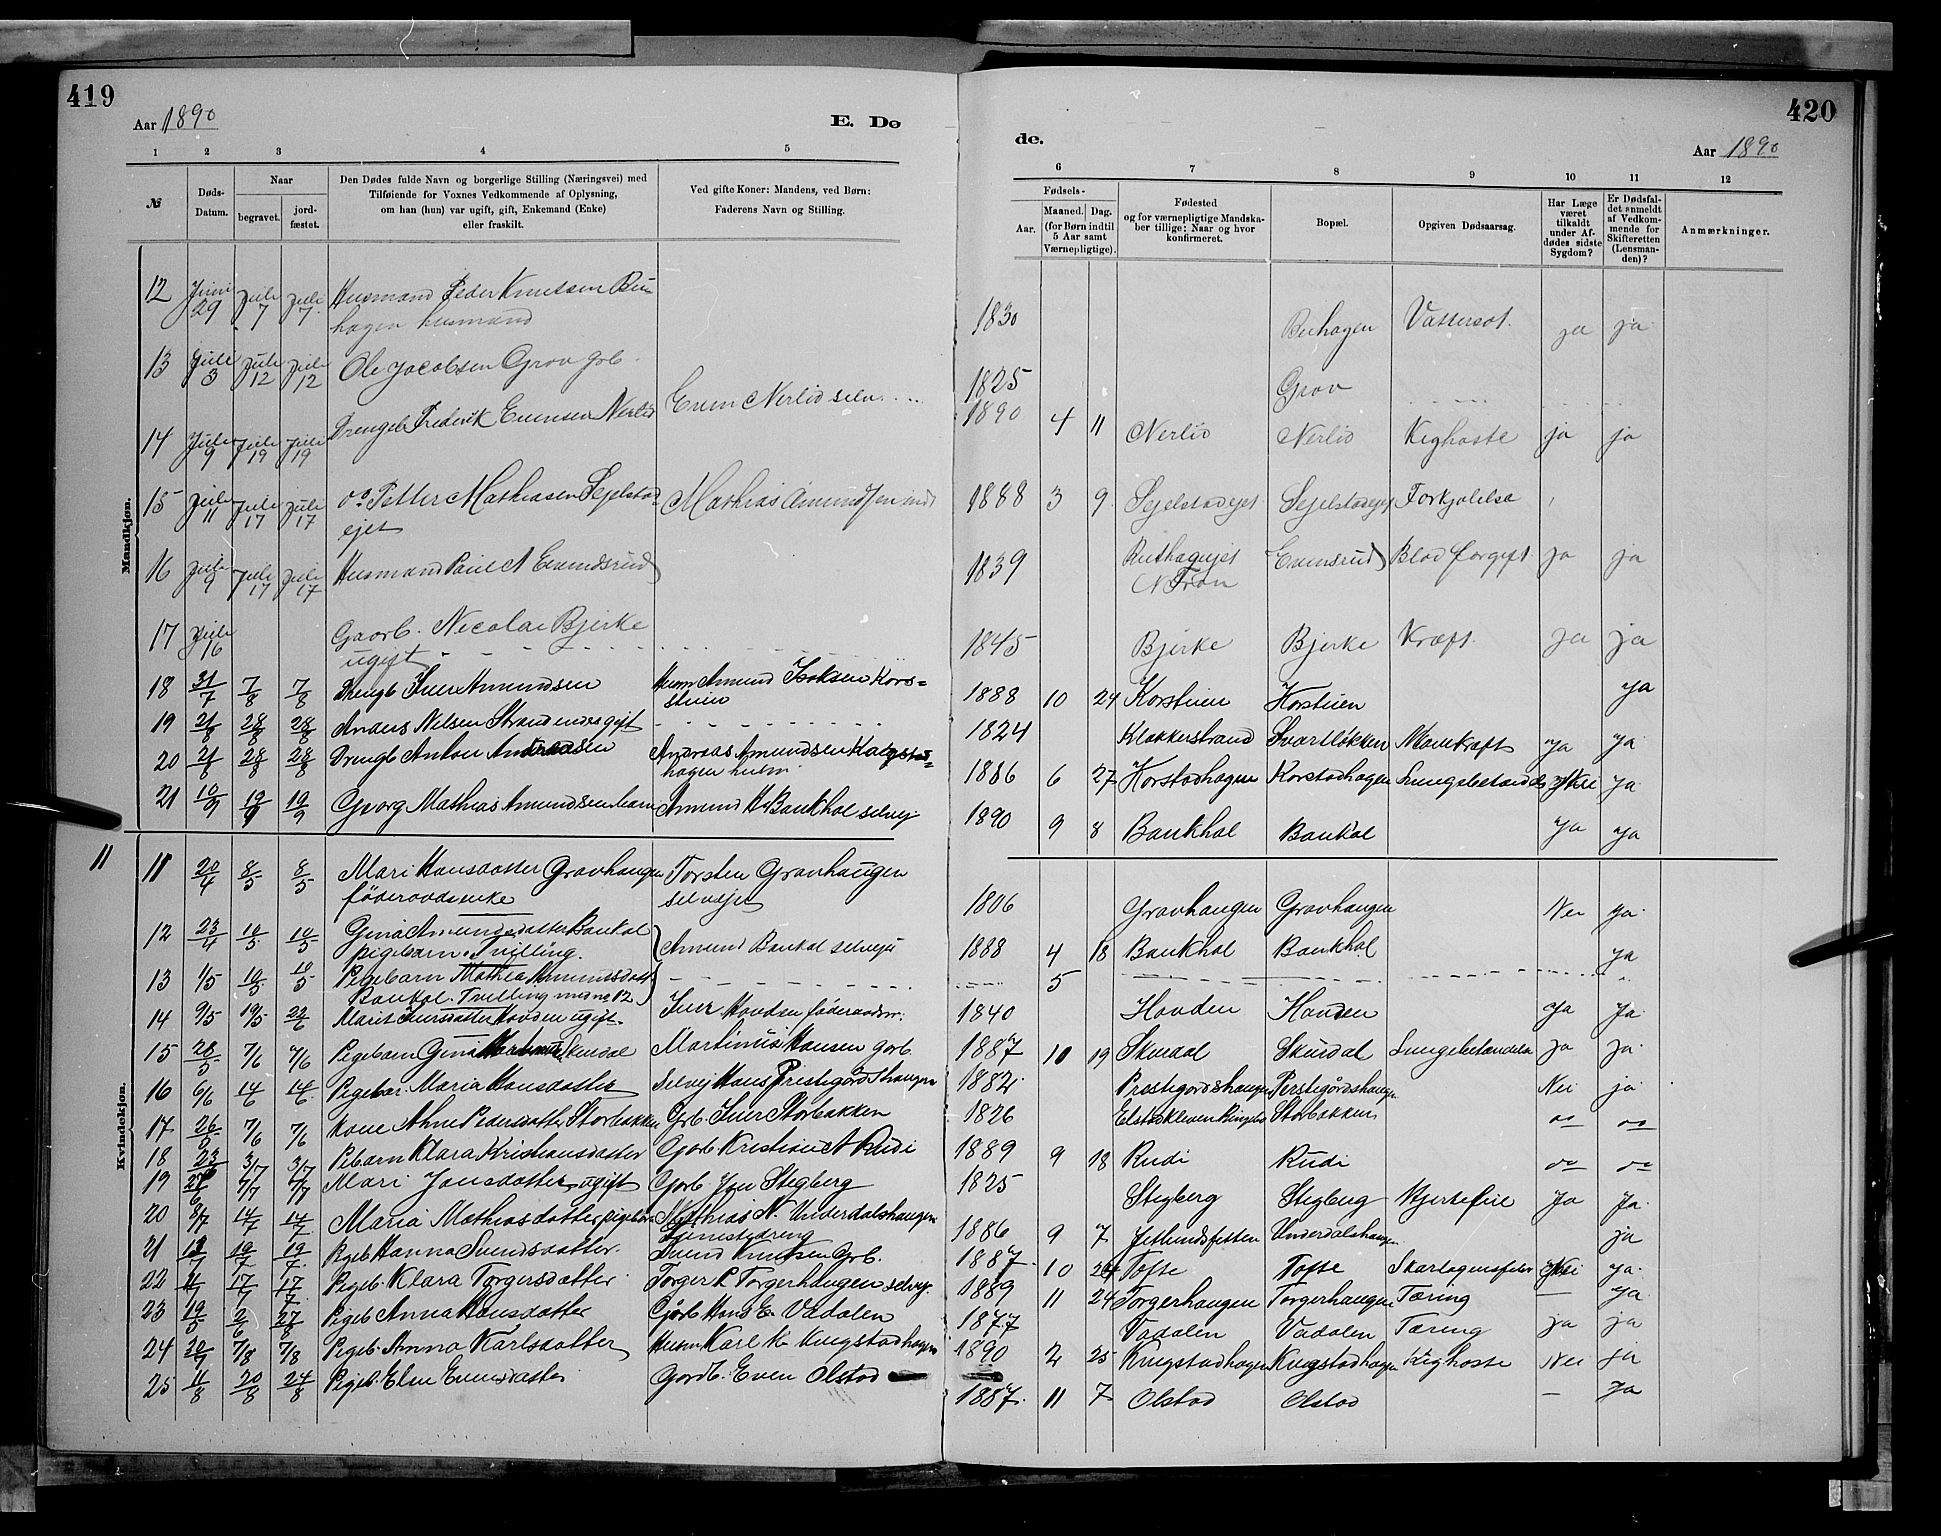 419
Aar 1890
E. Dø
1 2 3 4 5
№ Døds-Datum. Naar begravet. jord-fæstet.
Den Dødes fulde Navn og borgerlige Stilling (Næringsvei) med
Tilføiende for Voxnes Vedkommende af Oplysning,
om han (hun) var ugift, gift, Enkemand (Enke)
eller fraskilt.
Ved gifte Koner: Mandens, ved Børn:
Faderens Navn og Stilling.
Mandkjøn.
12 Juni 29 Juli 7 Juli 7 Husmand Peder Knutsen
hagen husmand
13 Juli 3 Juli 12 Juli 12 Ole Jacobsen Grov grb.
14 Juli 9 Juli 19 Juli 19 Drengeb Frederik Evensen Nerlid Even Nerlid selv
15 Juli 11 Juli 17 Juli 17 Petter Mathiasen Sejelstad Mathias Amundsen
ejet
16 Juli 9 Juli 17 Juli 17 Husmand Paul A Evensrud
17 Juli 16 Gaarb. Nicolai Bjerke
ugift
18 31/7 7/8 7/8 Drengb Iver Amundsen Husm Amund Isaksen Kors=
stuen
19 21/8 28/8 28/8 Anders Nelsen Strand gift
20 21/8 28/8 28/8 Drengb Anton Andreassen Andreas Amundsen
hagen husm
21 10/9 19/9 19/9 Georg Mathias Amundsen barn Amund Baukhol selvej
Kvindekjøn.
11 11 20/4 8/5 8/5 Mari Hansdatter Gravhaugen Torsten Gravhaugen
føderaadsenke selvejer
12 23/4 10/5 10/5 Gina Amundsdatter Baukal
pigebarn. Tvilling. Amund Baukal selvejer
13 1/5 10/5 10/5 Pigebarn Mathea Amundsdatt
Baukal. Tvilling med no 12
14 9/5 19/5 22/6 Marit Iversdatter Hovden ugift. Iver Hovden føderaadsm.
15 28/5 7/6 7/6 Pigebarn Gina Skurdal Martinus Hansen gorb.
16 6/6 14/6 14/6 Pigebar. Maria Hansdatter Selvej Hans Prestegårdshaugen
17 26/5 7/6 7/6 Kone Ahne Pedersdatter Storbakken Grb Iver Storbakken
18 23/6 3/7 3/7 Pibarn Klara Kristiansdatter Gorb Kristian A Rudi
19 7/7 7/7 Mari Jonsdatter ugift Gorb Stegberg
20 8/7 14/7 14/7 Maria Mathiasdatter pigebar Mathias N. Underdalshaugen
tjenestedreng
21 19/7 19/7 Pigeb Hanna Svendsdatter. Svend Knutsen Grb.
22 17/7 17/7 Pigeb. Klara Torgersdatter Torger P. Torgerhaugen selvej.
23 19/5 2/6 27/8 Pigeb Anna Hansdatter Gorb Hans E. Vadalen
24 7/8 7/8 Pigeb. Anna Karlsdatter Husm Karl K Kragstadhagen
25 11/8 20/8 24/8 Pigeb. Elen Evensdatter Gordb. Even Olstad
420
de.
Aar 1890
6 7 8 9 10 11 12
Fødsels-
Aar. Maaned. Dag.
(for Børn indtil
5 Aar samt
Værnepligtige).
Fødested
og for værnepligtige Mandska-
ber tillige: Naar og hvor
konfirmeret.
Bopæl.
Opgiven Dødsaarsag.
Har Læge
været
tilkaldt
under Af-
dødes sidste
Sygdom?
Er Dødsfal-
det anmeldt
af Vedkom-
mende for
Skifteretten
(Lensman-
den)?
Anmærkninger.
1830 Vattersot. ja ja
1825 Grov
1890 4 11 Nerlid Nerlid Kighoste ja ja
1888 3 9 Sejelstadejet Sejelstadejet Forkjølelse
1839 Evensrud Blodforgift. ja ja
N Fron
1845 Bjerke Bjerke Kræft. ja ja
1888 10 24 Korstuen Korstuen ja
1824 Klokkerstrand Svartløkken Mavekræft ja ja
1886 6 27 Korstadhagen Korstadhagen Lungebetændels Nei ja
1890 9 8 Baukhol Baukal ja ja
1806 Gravhaugen Gravhaugen Nei ja
1888 4 18 Baukhol Baukhol ja
5
1840 Hovden Hovden ja ja
1887 10 19 Skurdal Skurdal Lungebetændelse ja ja
1882 Prestegordshaugen Perstegårdshaugen Nei ja
1826 Elstadkleven Ringebo Storbakken
1889 9 18 Rudi Rudi
1825 Stegberg Stegberg Hjertefeil ja ja
1886 9 7 Underdalshaugen ja
1887 10 24 Tofte Tofte Skarlagensfeber Nei ja
1889 11 24 Torgerhaugen Torgerhaugen Tæring — ja
1877 Vadalen Vadalen Tæring ja ja
1890 2 25 Kragstadhagen Kragstadhagen Kighoste Nei ja
1887. 11 7 Olstad Olstad — ja